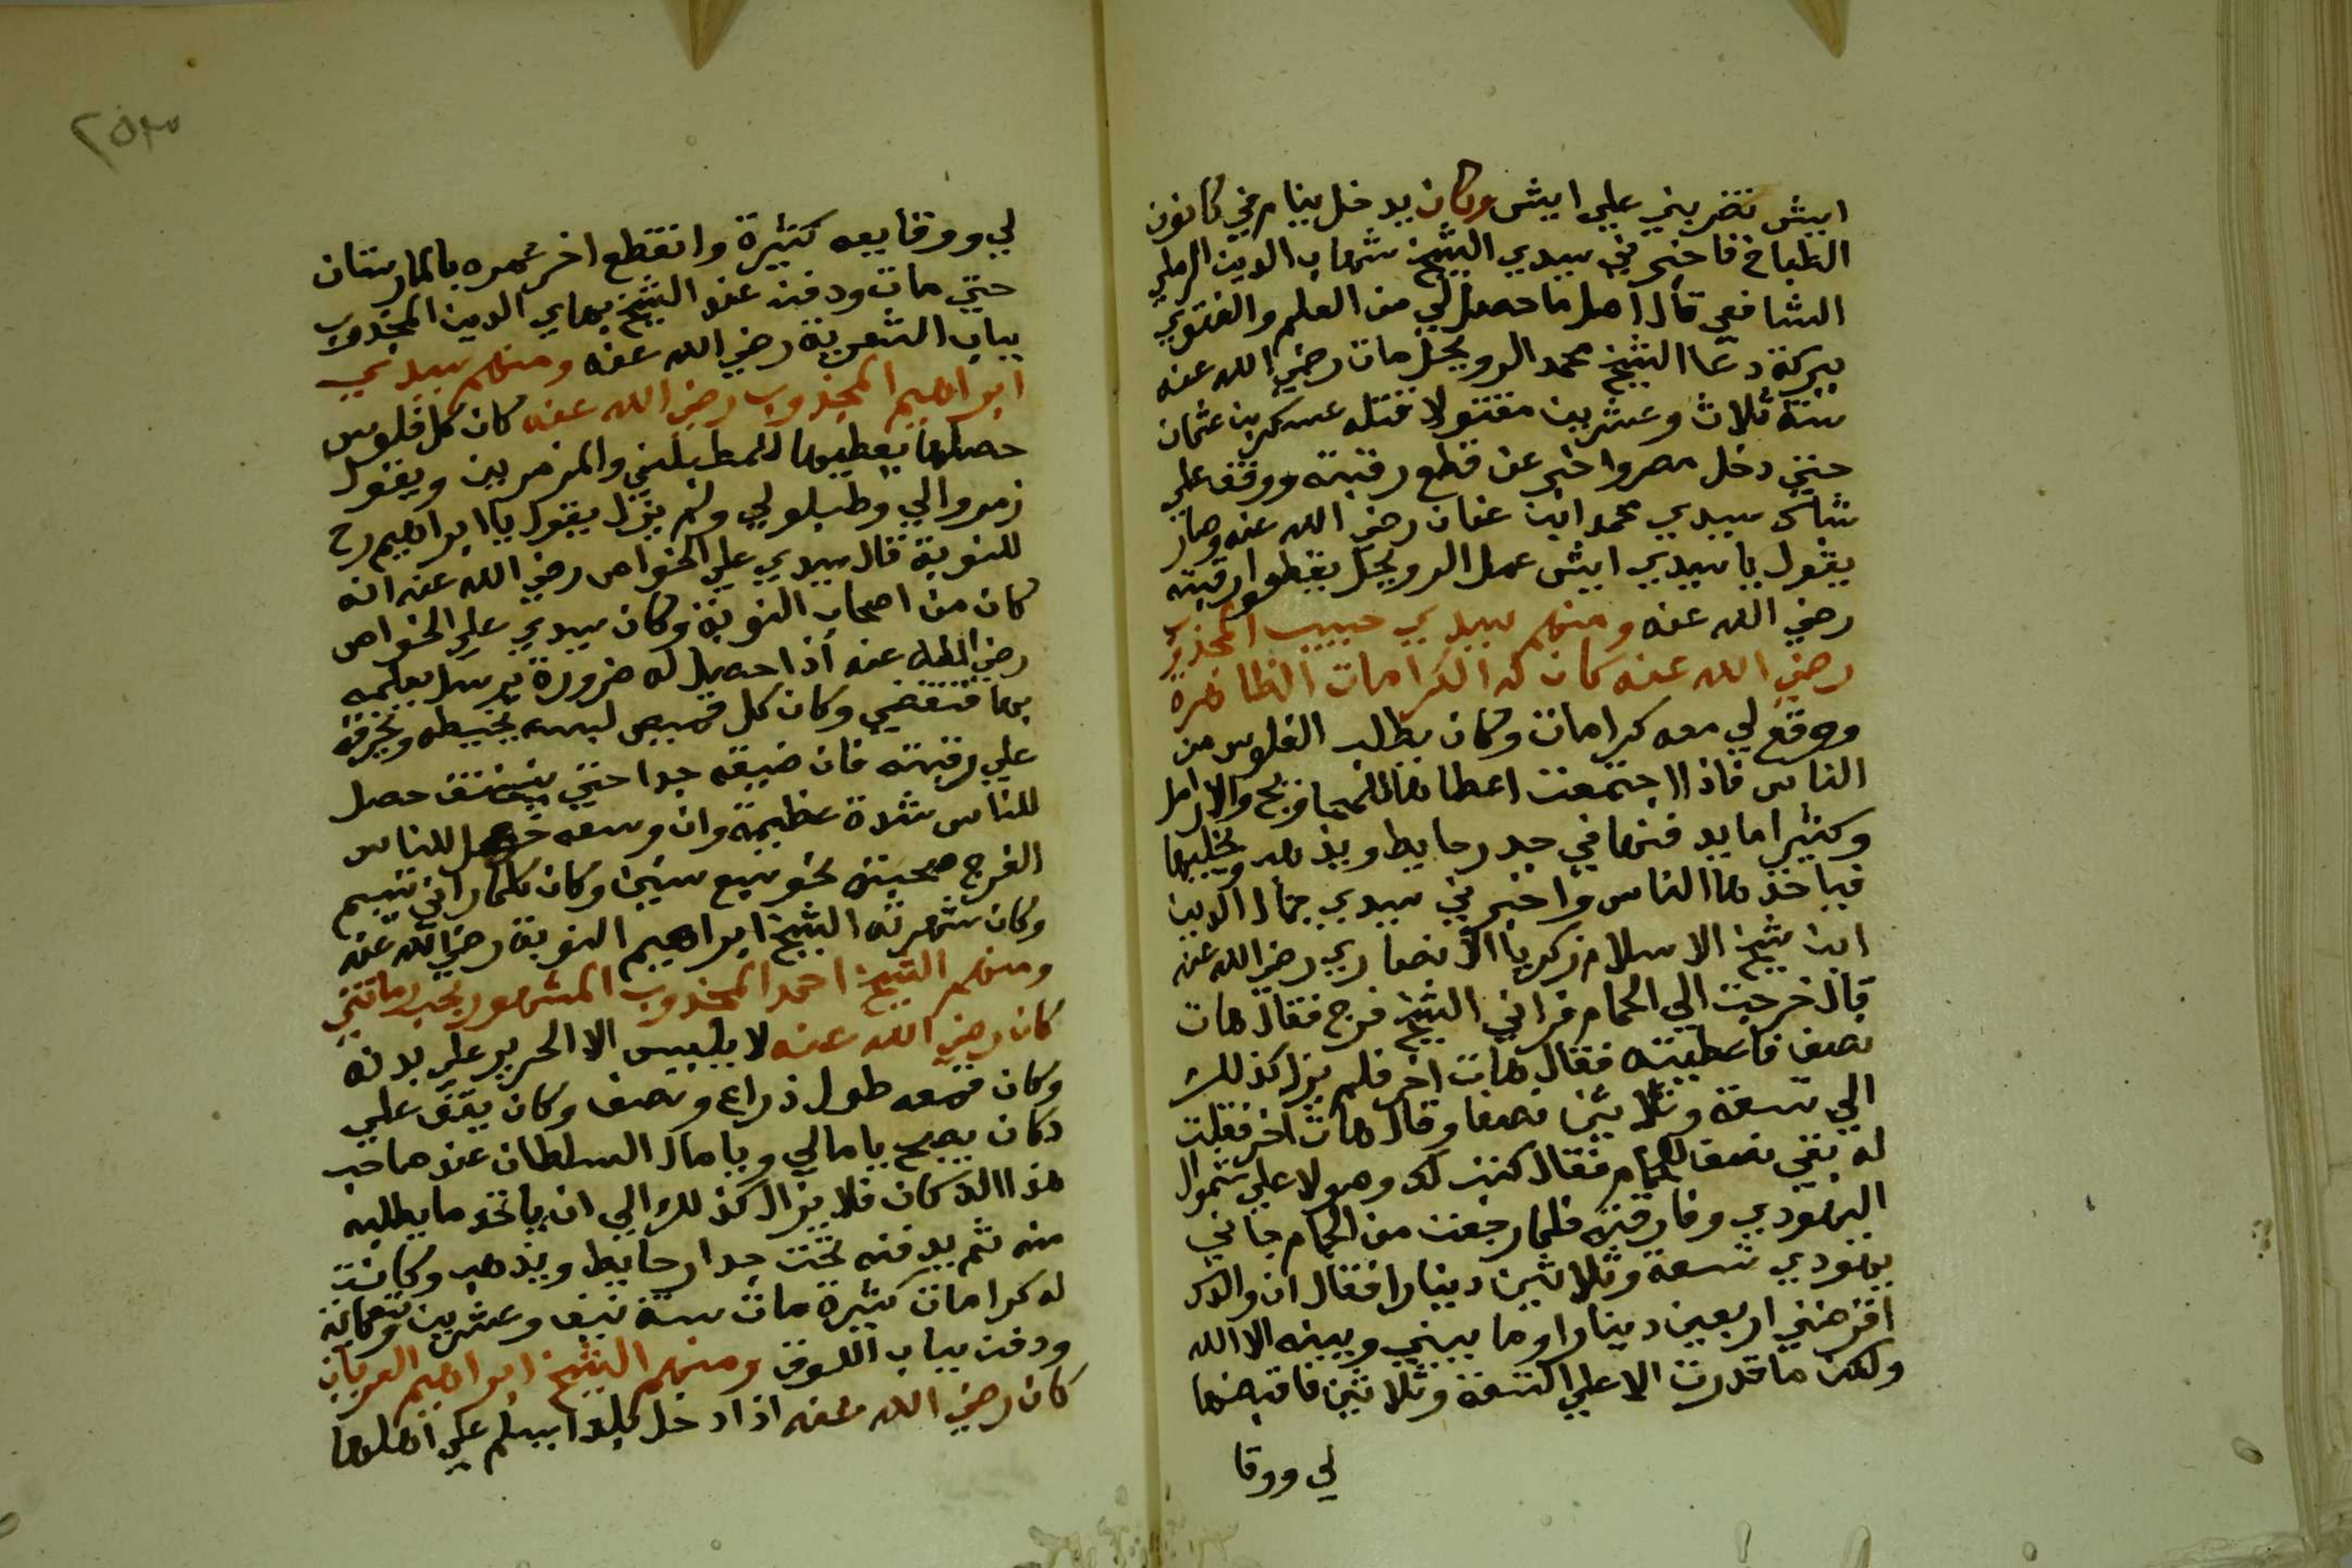 ايش تضربني علي ايش وكان يدخل ينام في كانون
الطباخ فاخبرني سيدي الشيخ شهاب الدين الرملي
الشافعي قال اصل ما حصل لي من العلم والفتوي
ببركة دعا الشيخ محمد الرويجل مات رضي الله عنه
سنة ثلاث وعشرين مقتولا قتله عسكر بن عثمان
حتي دخل مصر واخبر عن قطع رقبته ووقف علي
شباك سيدي محمد ابن عنان رضي الله عنه وصار
يقول يا سيدي ايش عمل الرويجل يقطعوا رقبته
رضي الله عنه ومنهم سيدي حبيب المجذوب
رضي الله عنه كان له الكرامات الظاهرة
ووقع لي معه كرامات وكان يطلب الفلوس من
الناس فاذا اجتمعت اعطاها للمحاويج والارامل
وكثيرا ما يدفنها في جدر حايط ويذهب ويخليها
فياخذها الناس واخبرني سيدي جمال الدين
ابن شيخ الاسلام زكريا الانصاري رضي الله عنه
قال خرجت الي الحمام فراني الشيخ فرج فقال هات
نصف فاعطيته فقال هات اخر فلم يزل كذلك
الي تسعة وثلاثين نصفا وقال هات اخر فقلت
له بقي نصف الحمام فقال كتبت لك وصولا علي شموال
اليهودي وفارقته فلما رجعت من الحمام جاني
يهودي تسعة وثلاثين دينارا فقال ان والدك
اقرضني اربعين دينارا وما بيني وبينه الا الله
ولكن ما قدرت الا علي التسعة وثلاثين فاقبضها
لي ووقا
٢٥٣
لي ووقايعه كثيرة وانقطع اخر عمره بالمارستان
حتي مات ودفن عند الشيخ بهاي الدين المجذوب
بباب الشعرية رضي الله عنه ومنهم سيدي
ابراهيم المجذوب رضي الله عنه كان كل فلوس
حصلها يعطيها للمطبلين والمزمرين ويقول
زمروا لي وطبلو لي ولم يزل يقول يا ابراهيم رح
للنوبة قال سيدي علي الخواص رضي الله عنه انه
كان من اصحاب النوبة وكان سيدي علي الخواص
رضي الله عنه اذا حصل له ضرورة يرسل يعلمه
بها فتقضي وكان كل قميص لبسه يخيطه ويخرقه
علي رقبته فان ضيقه جدا حتي يتخنق حصل
للناس شدة عظيمة وان وسعه حصل للناس
الفرج صحبته نحو سبع سنين وكان كلما راني تبسم
وكان شهرته الشيخ ابراهيم النوبة رضي الله عنه
ومنهم الشيخ احمد المجذوب المشهور بحب رمانتي
كان رضي الله عنه لا يلبس الا الحرير علي بدنه
وكان قمعه طول ذراع ونصف وكان يقف علي
دكان يصيح يا مالي ويا مال السلطان عند صاحب
هذا الدكان فلا يزال كذلك الي ان ياخذ ما يطلبه
منه ثم يدفنه تحت جدار حايط ويذهب وكانت
له كرامات كثيرة مات سنة نيف وعشرين وتسعماية
ودفن بباب اللوق ومنهم الشيخ ابراهيم العريان
كان رضي الله عنه اذا دخل بلدا يسلم علي اهلها